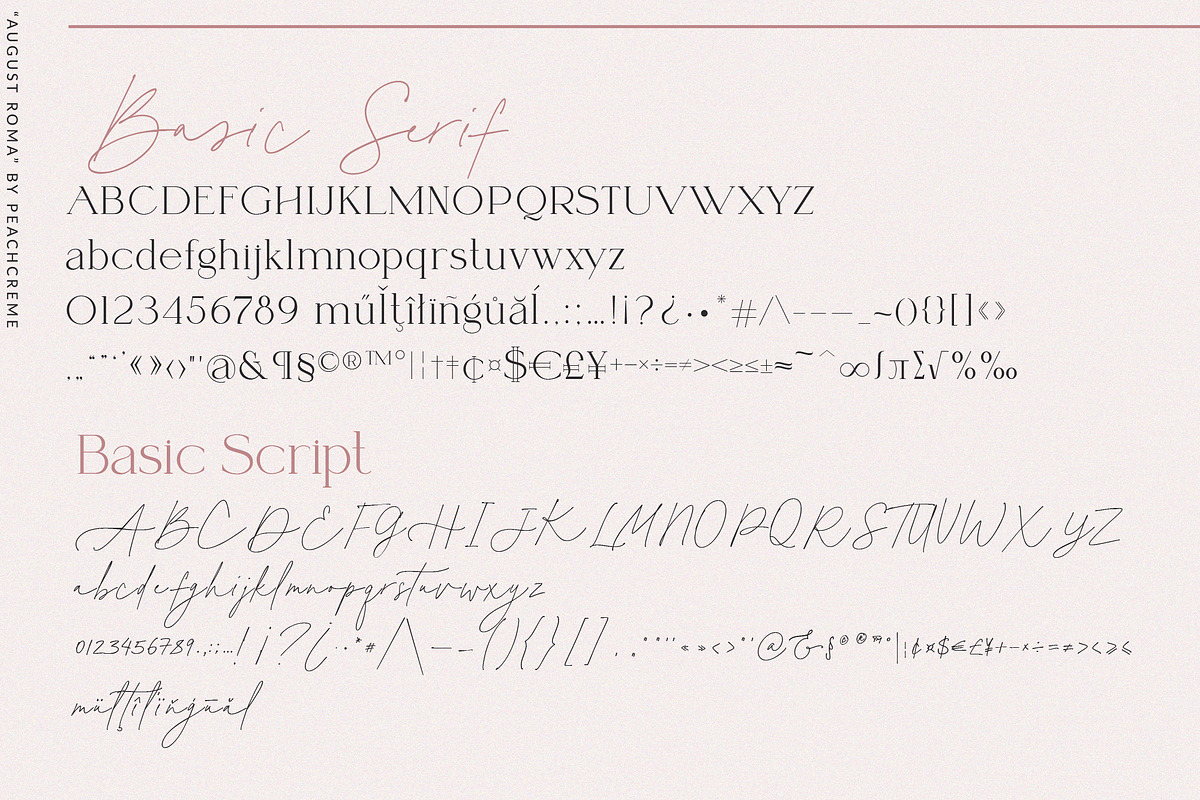 "AUGUST ROMA" BY PEACHCREME
Basic Serif
ABCDEFGHIJKLMNOPQRSTUVWXYZ
abcdefghijklmnopqrstuvwxyz
0123456789 műľţîłïñģůăĺ.,:;...!¡?¿·•*#/\-–—_~(){}[]‹›
‚„“”‘’«»‹›"'@&¶§©®™°|¦†‡¢¤$€£¥+−×÷=≠><≥≤±≈~^∞∫π∑√%‰
Basic Script
ABCDEFGHIJKLMNOPQRSTUVWXYZ
abcdefghijklmnopqrstuvwxyz
0123456789.,:;...!¡?¿·•*#/\–-(){}[]‚„“”‘’«»‹›"'@&§©®™°|¦¢¤$€£¥+−×÷=≠><≥≤